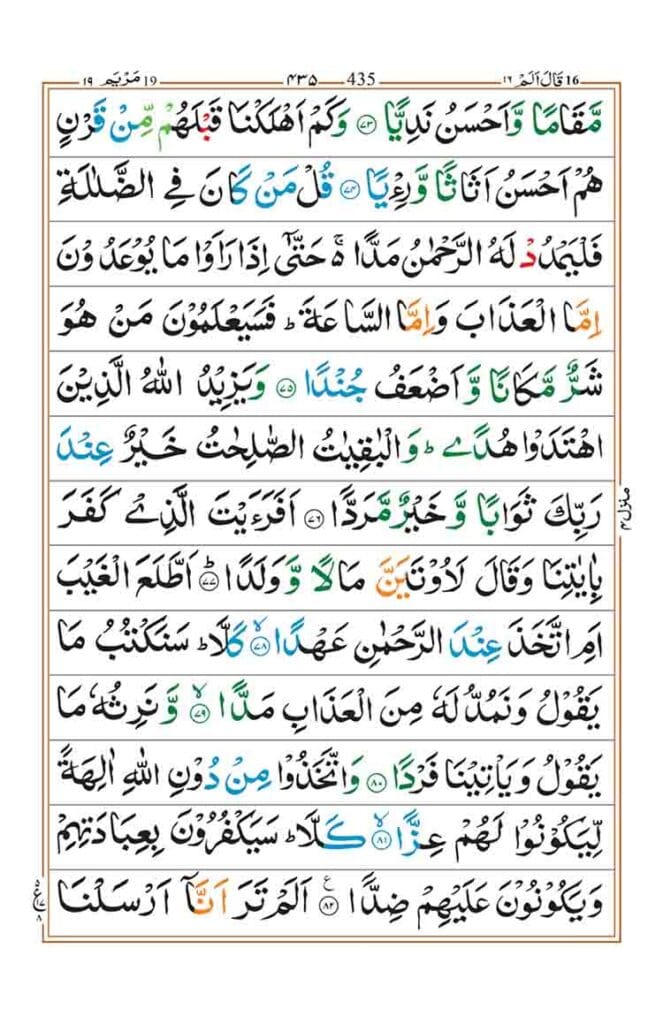 16 قَالَ اَلَمْ ١٦ 435 ۴۳۵ 19 مَرْيَم ١٩
مَّقَامًا وَّاَحْسَنُ نَدِيًّا ﴿٧٣﴾ وَكَمْ اَهْلَكْنَا قَبْلَهُمْ مِّنْ قَرْنٍ
هُمْ اَحْسَنُ اَثَاثًا وَّرِءْيًا ﴿٧٤﴾ قُلْ مَنْ كَانَ فِي الضَّلٰلَةِ
فَلْيَمْدُدْ لَهُ الرَّحْمٰنُ مَدًّا ۬ۚ حَتّٰۤى اِذَا رَاَوْا مَا يُوْعَدُوْنَ
اِمَّا الْعَذَابَ وَاِمَّا السَّاعَةَ ؕ فَسَيَعْلَمُوْنَ مَنْ هُوَ
شَرٌّ مَّكَانًا وَّاَضْعَفُ جُنْدًا ﴿٧٥﴾ وَيَزِيْدُ اللّٰهُ الَّذِيْنَ
اهْتَدَوْا هُدًے ؕ وَالْبٰقِيٰتُ الصّٰلِحٰتُ خَيْرٌ عِنْدَ
رَبِّكَ ثَوَابًا وَّخَيْرٌ مَّرَدًّا ﴿٧٦﴾ اَفَرَءَيْتَ الَّذِيْ كَفَرَ
بِاٰيٰتِنَا وَقَالَ لَاُوْتَيَنَّ مَالًا وَّوَلَدًا ؕ ﴿٧٧﴾ اَطَّلَعَ الْغَيْبَ
اَمِ اتَّخَذَ عِنْدَ الرَّحْمٰنِ عَهْدًا ۙ ﴿٧٨﴾ كَلَّا ؕ سَنَكْتُبُ مَا
يَقُوْلُ وَنَمُدُّ لَهٗ مِنَ الْعَذَابِ مَدًّا ۙ ﴿٧٩﴾ وَّنَرِثُهٗ مَا
يَقُوْلُ وَيَاْتِيْنَا فَرْدًا ﴿٨٠﴾ وَاتَّخَذُوْا مِنْ دُوْنِ اللّٰهِ اٰلِهَةً
لِّيَكُوْنُوْا لَهُمْ عِزًّا ۙ ﴿٨١﴾ كَلَّا ؕ سَيَكْفُرُوْنَ بِعِبَادَتِهِمْ
وَيَكُوْنُوْنَ عَلَيْهِمْ ضِدًّا ﴿٨٢﴾ ع اَلَمْ تَرَ اَنَّاۤ اَرْسَلْنَا
منزل ۴
۵ ع ١٧ ٨